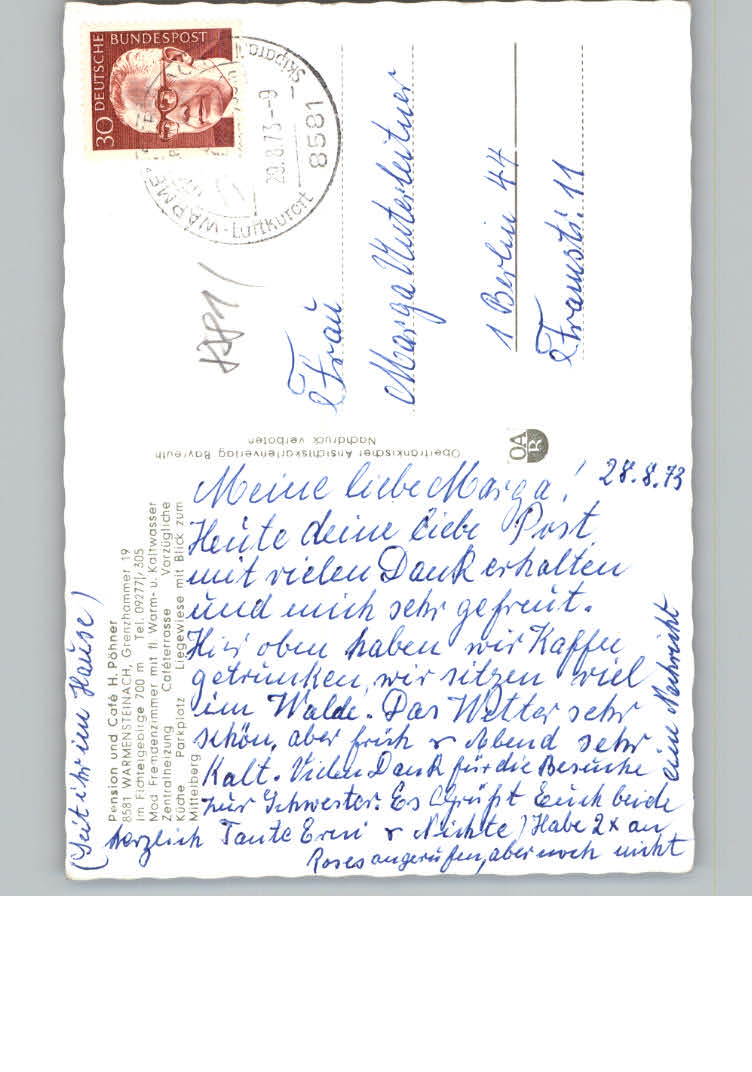 30 DEUTSCHE BUNDESPOST
8581 WARMENSTEINACH
Luftkurort
29.8.73-9
8581
Frau
Marga Unterleitner
1 Berlin 44
Framstr. 11
Oberfränkischer Ansichtskartenverlag Bayreuth
Nachdruck verboten
OA
R
Pension und Café H. Pöhner
8581 WARMENSTEINACH, Grenzhammer 19
im Fichtelgebirge 700 m Tel. 09277/305
Mod Fremdenzimmer mit fl Warm- u. Kaltwasser
Zentralheizung Caféterrasse Vorzügliche
Küche Parkplatz Liegewiese mit Blick zum
Mittelberg
28.8.73
Meine liebe Marga!
Heute deine liebe Post
mit vielen Dank erhalten
und mich sehr gefreut.
Hier oben haben wir Kaffee
getrunken, wir sitzen viel
im Walde. Das Wetter sehr
schön, aber früh & Abend sehr
Kalt. Vielen Dank für die Besuche
zur Schwester. Es Grüßt Euch beide
herzlich Tante Erni & Nichte) Habe 2x an
Roses angerufen, aber noch nicht
eine Nachricht
(Seit ihr im Hause)